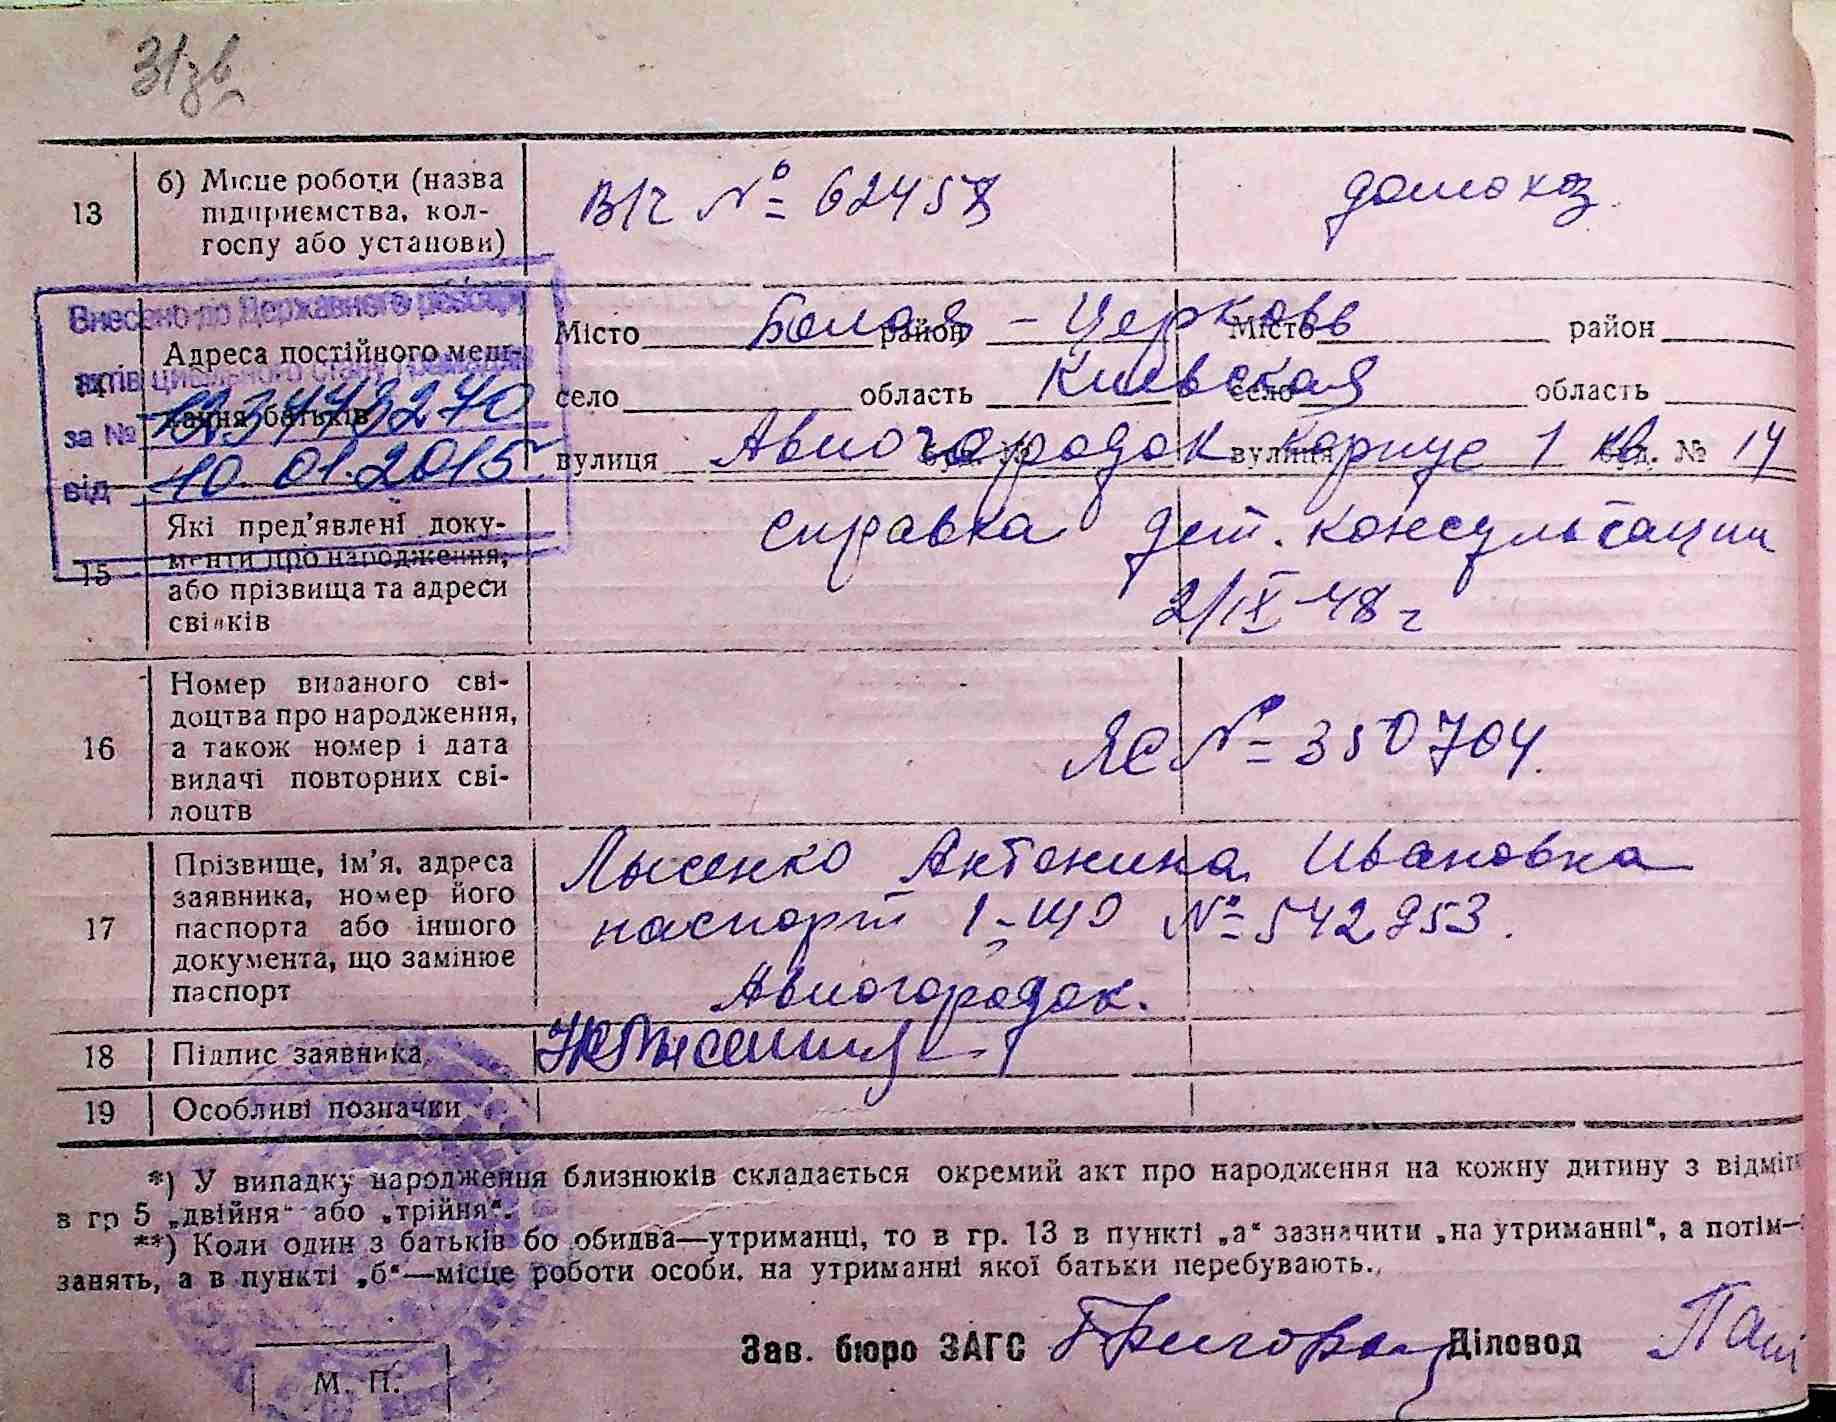 31зв
13
б) Місце роботи (назва
підприємства, кол-
госпу або установи)
В/ч № 62458
домохоз.
Внесено до Державного реєстру
актів цивільного стану громадян
за №
від 10.01.2015
Адреса постійного меш-
кання батьків
Місто Белая район - Церковь Місто район
село область Киевская село область
вулиця Авиогородок вулиця корпус 1 кв. № 14
15
Які пред'явлені доку-
менти про народження,
або прізвища та адреси
свідків
справка дет. консультации
2/IX-48 г
16
Номер виданого сві-
доцтва про народження,
а також номер і дата
видачі повторних сві-
доцтв
ЯС № 350704.
17
Прізвище, ім'я, адреса
заявника, номер його
паспорта або іншого
документа, що замінює
паспорт
Лысенко Антонина Ивановка
паспорт 1-ЩО № 542953.
Авиогородок.
18
Підпис заявника
19
Особливі позначки
*) У випадку народження близнюків складається окремий акт про народження на кожну дитину з відміт
в гр 5 „двійня“ або „трійня“.
**) Коли один з батьків бо обидва—утриманці, то в гр. 13 в пункті „а“ зазначити „на утриманні“, а потім—
занять, а в пункті „б“—місце роботи особи, на утриманні якої батьки перебувають.
Зав. бюро ЗАГС Діловод
М. П.